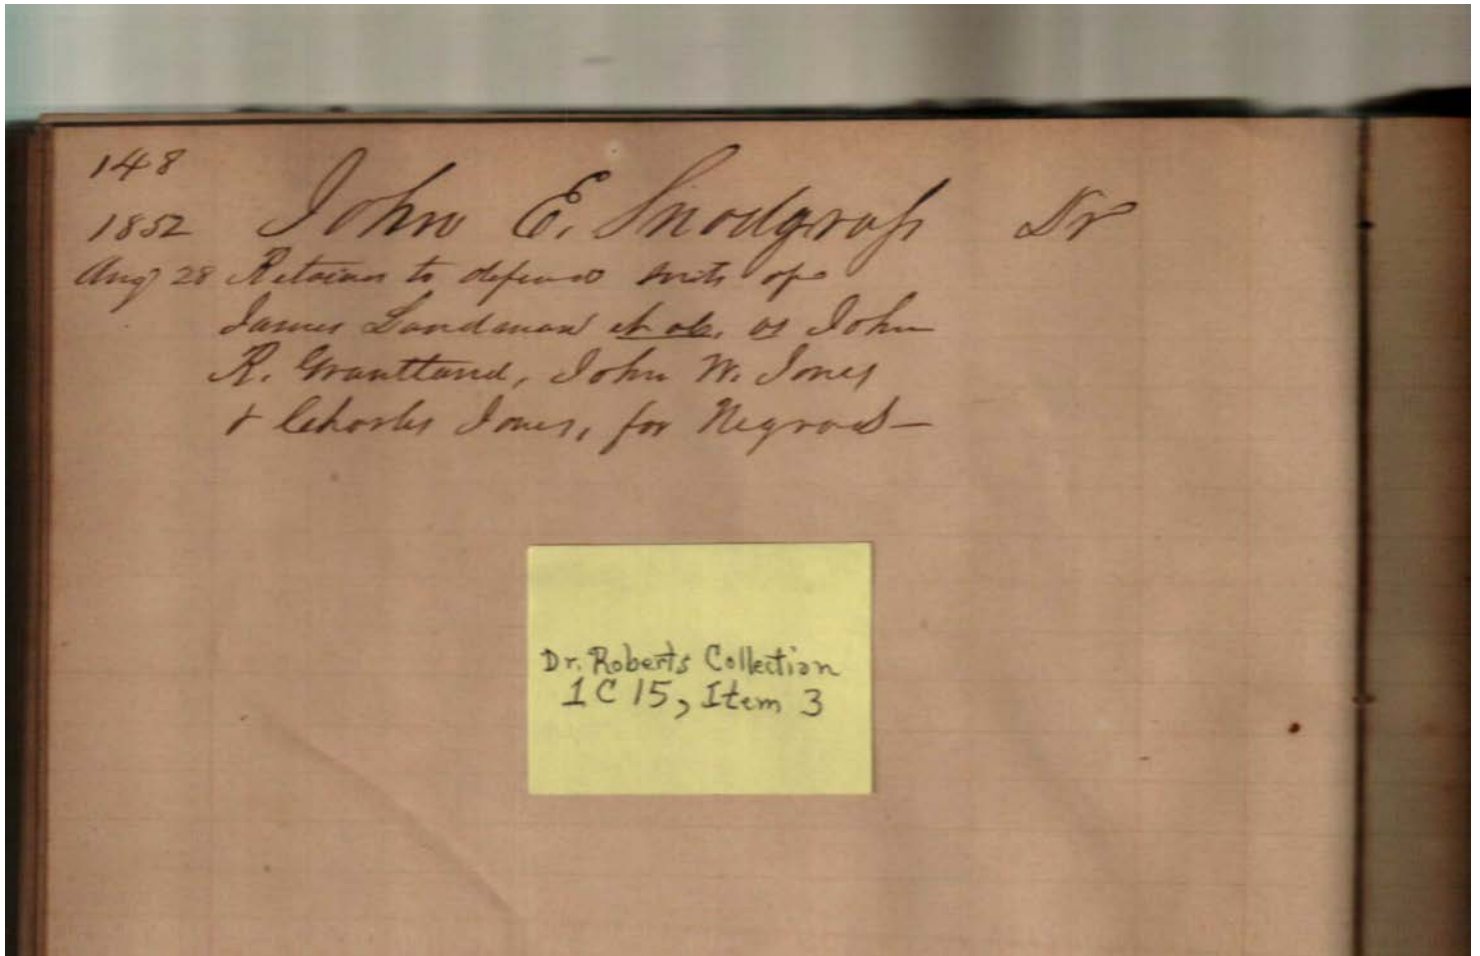 148
1852 John E. Snodgrass Dr
Aug 28 Retainer to defend suits of
James Landman et als. vs John
R. Grantland, John W. Jones
& Charles Jones, for Negroes—
Dr. Roberts Collection
1C15, Item 3